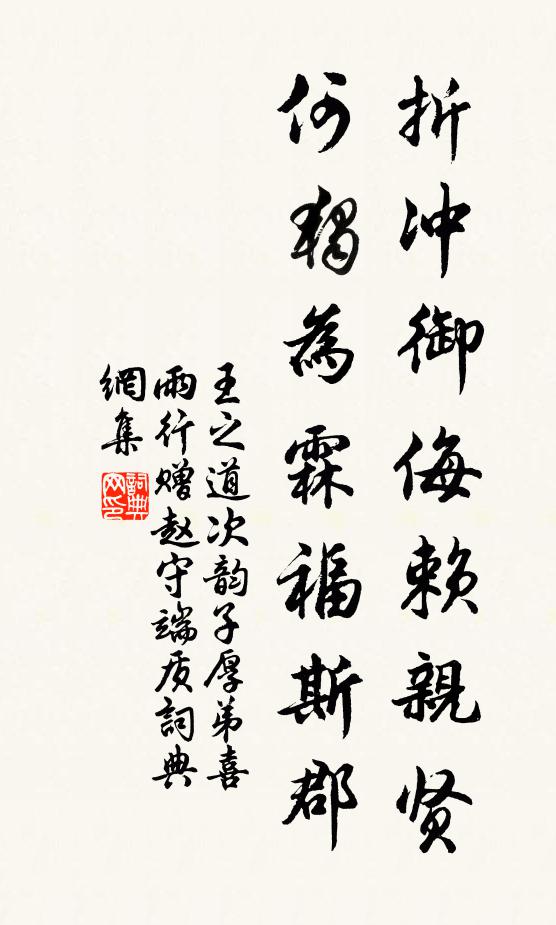 折冲御侮赖親贤
何獨為霖福斯郡
王之道次韵子厚弟喜
雨行赠赵守端质詞典
網集
詞典网印